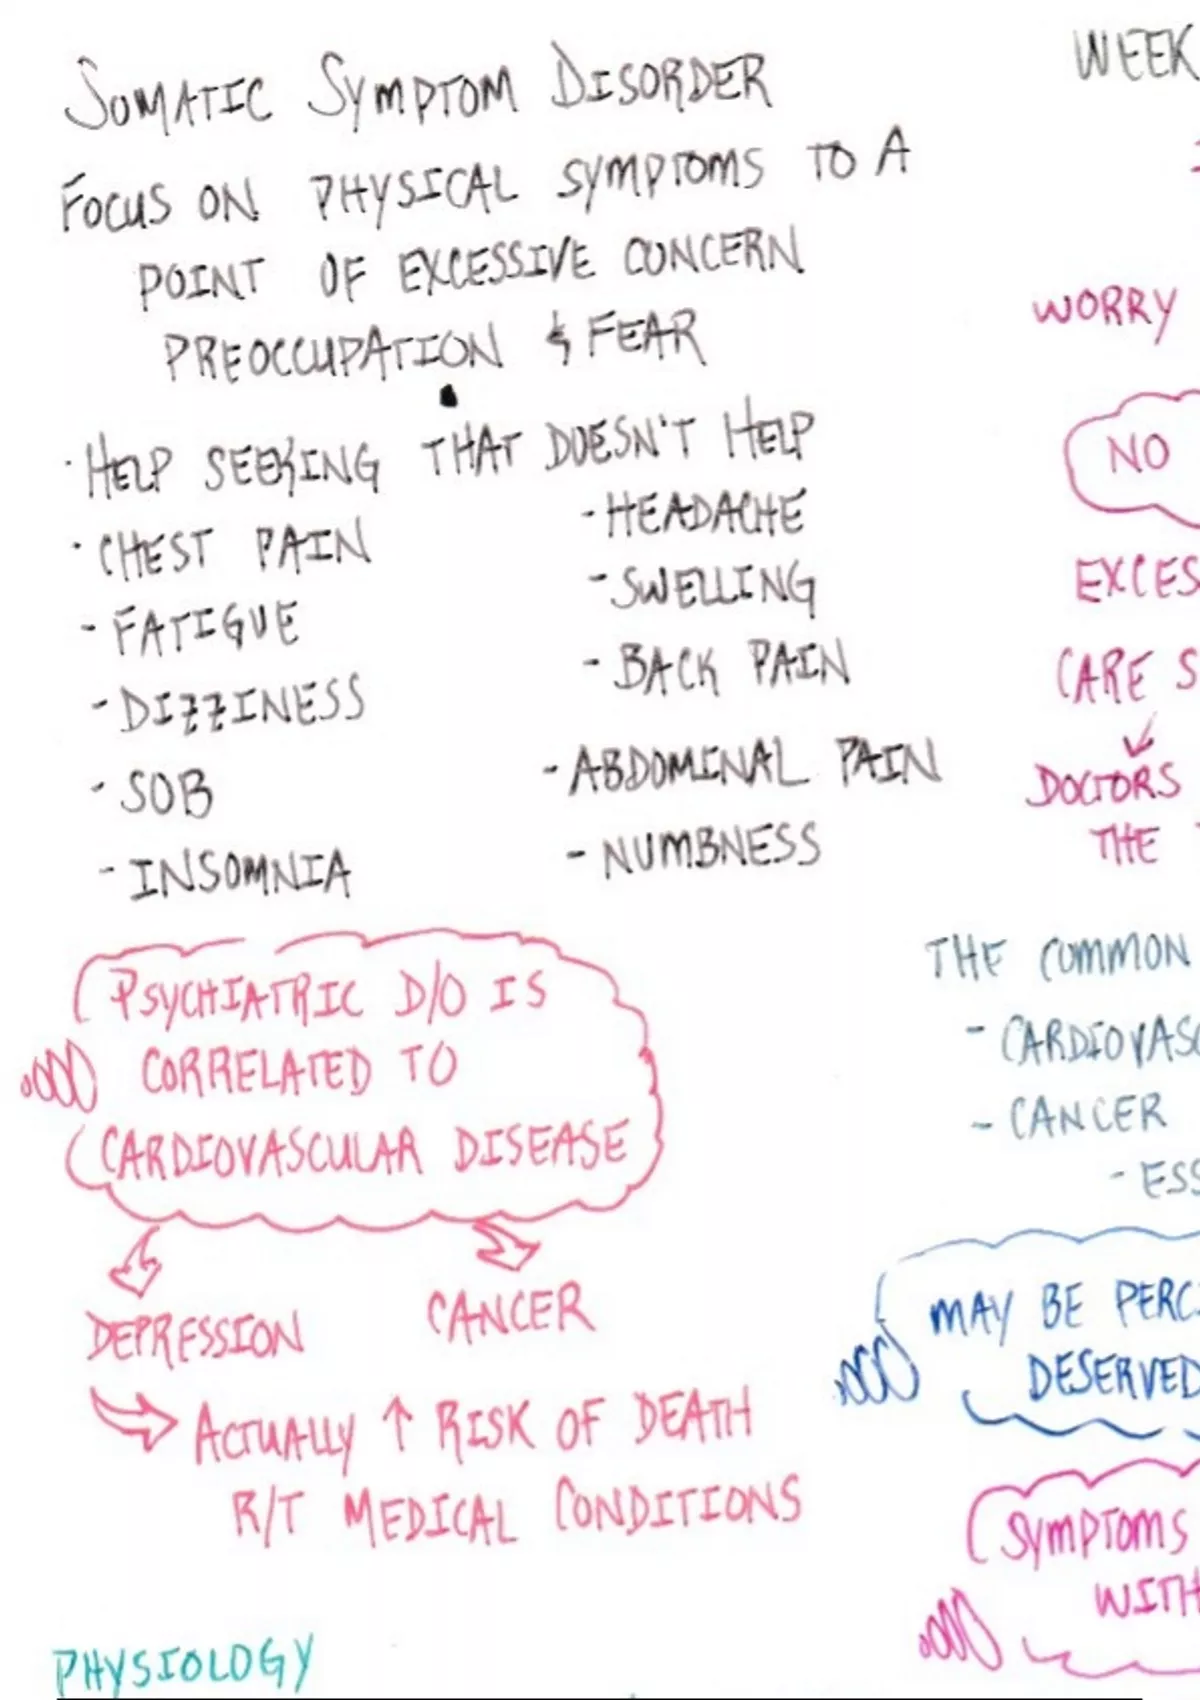 SOMATIC SYMPTOM DISORDER
FOCUS ON PHYSICAL SYMPTOMS TO A
POINT OF EXCESSIVE CONCERN
PREOCCUPATION & FEAR
· HELP SEEKING THAT DOESN'T HELP
· CHEST PAIN
- FATIGUE
- DIZZINESS
- SOB
- INSOMNIA
- HEADACHE
- SWELLING
- BACK PAIN
- ABDOMINAL PAIN
- NUMBNESS
PSYCHIATRIC D/O IS
CORRELATED TO
CARDIOVASCULAR DISEASE
DEPRESSION
CANCER
ACTUALLY ↑ RISK OF DEATH
R/T MEDICAL CONDITIONS
PHYSIOLOGY
WEEK
WORRY
NO
EXCES
CARE S
DOCTORS
THE
THE COMMON
- CARDIOVASC
- CANCER
- ESS
MAY BE PERC
DESERVED
SYMPTOMS
WITH